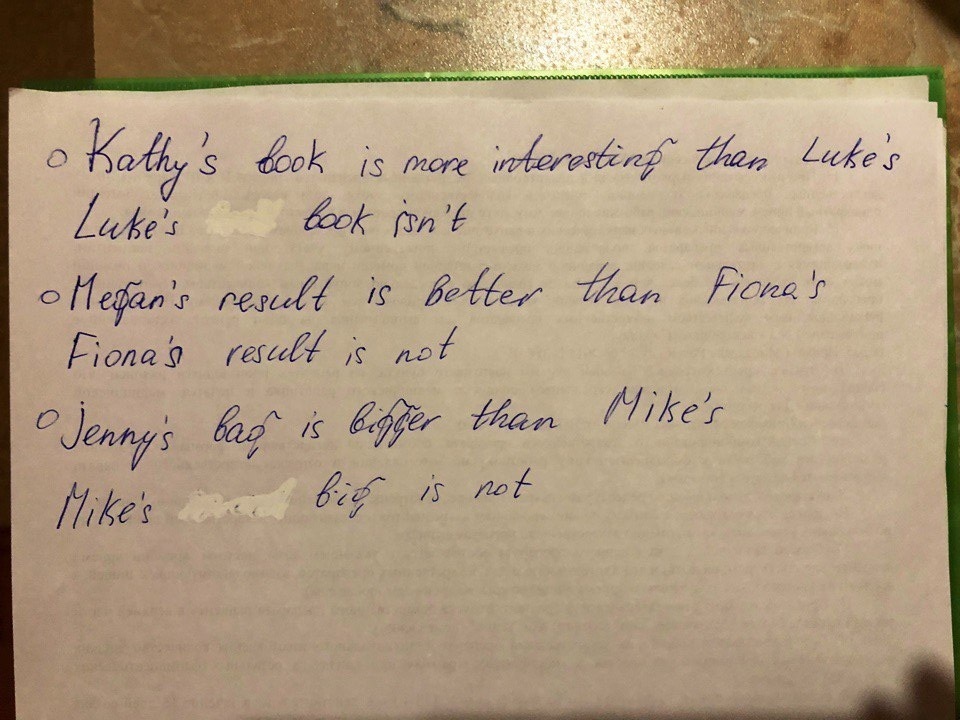 Kathy's book is more interesting than Luke's
Luke's book isn't
Megan's result is better than Fiona's
Fiona's result is not
Jenny's bag is bigger than Mike's
Mike's big is not